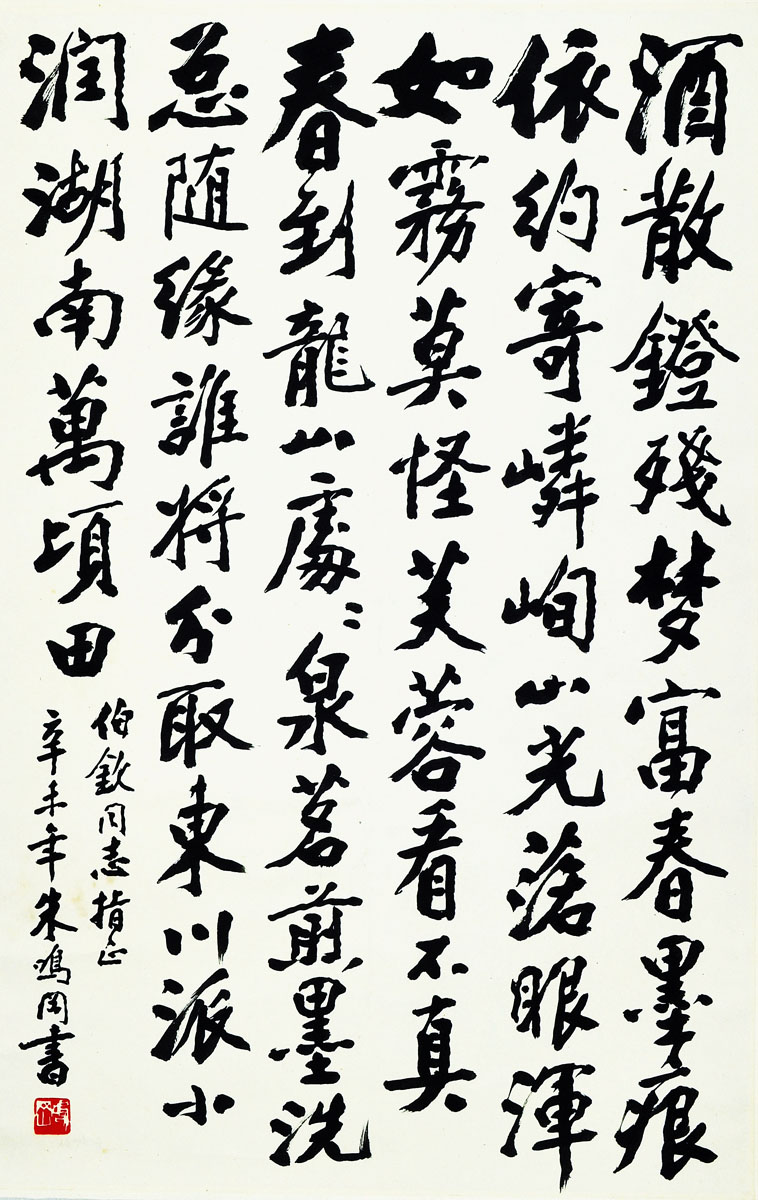 酒散鐙殘梦富春墨痕
依约寄嶙峋山光落眼渾
如霧莫怪芙蓉看不真
春到龍山處〻泉茗煎墨洗
总随缘誰将分取東川派小
润湖南萬頃田
伯欽同志指正
辛未年朱鸣冈書